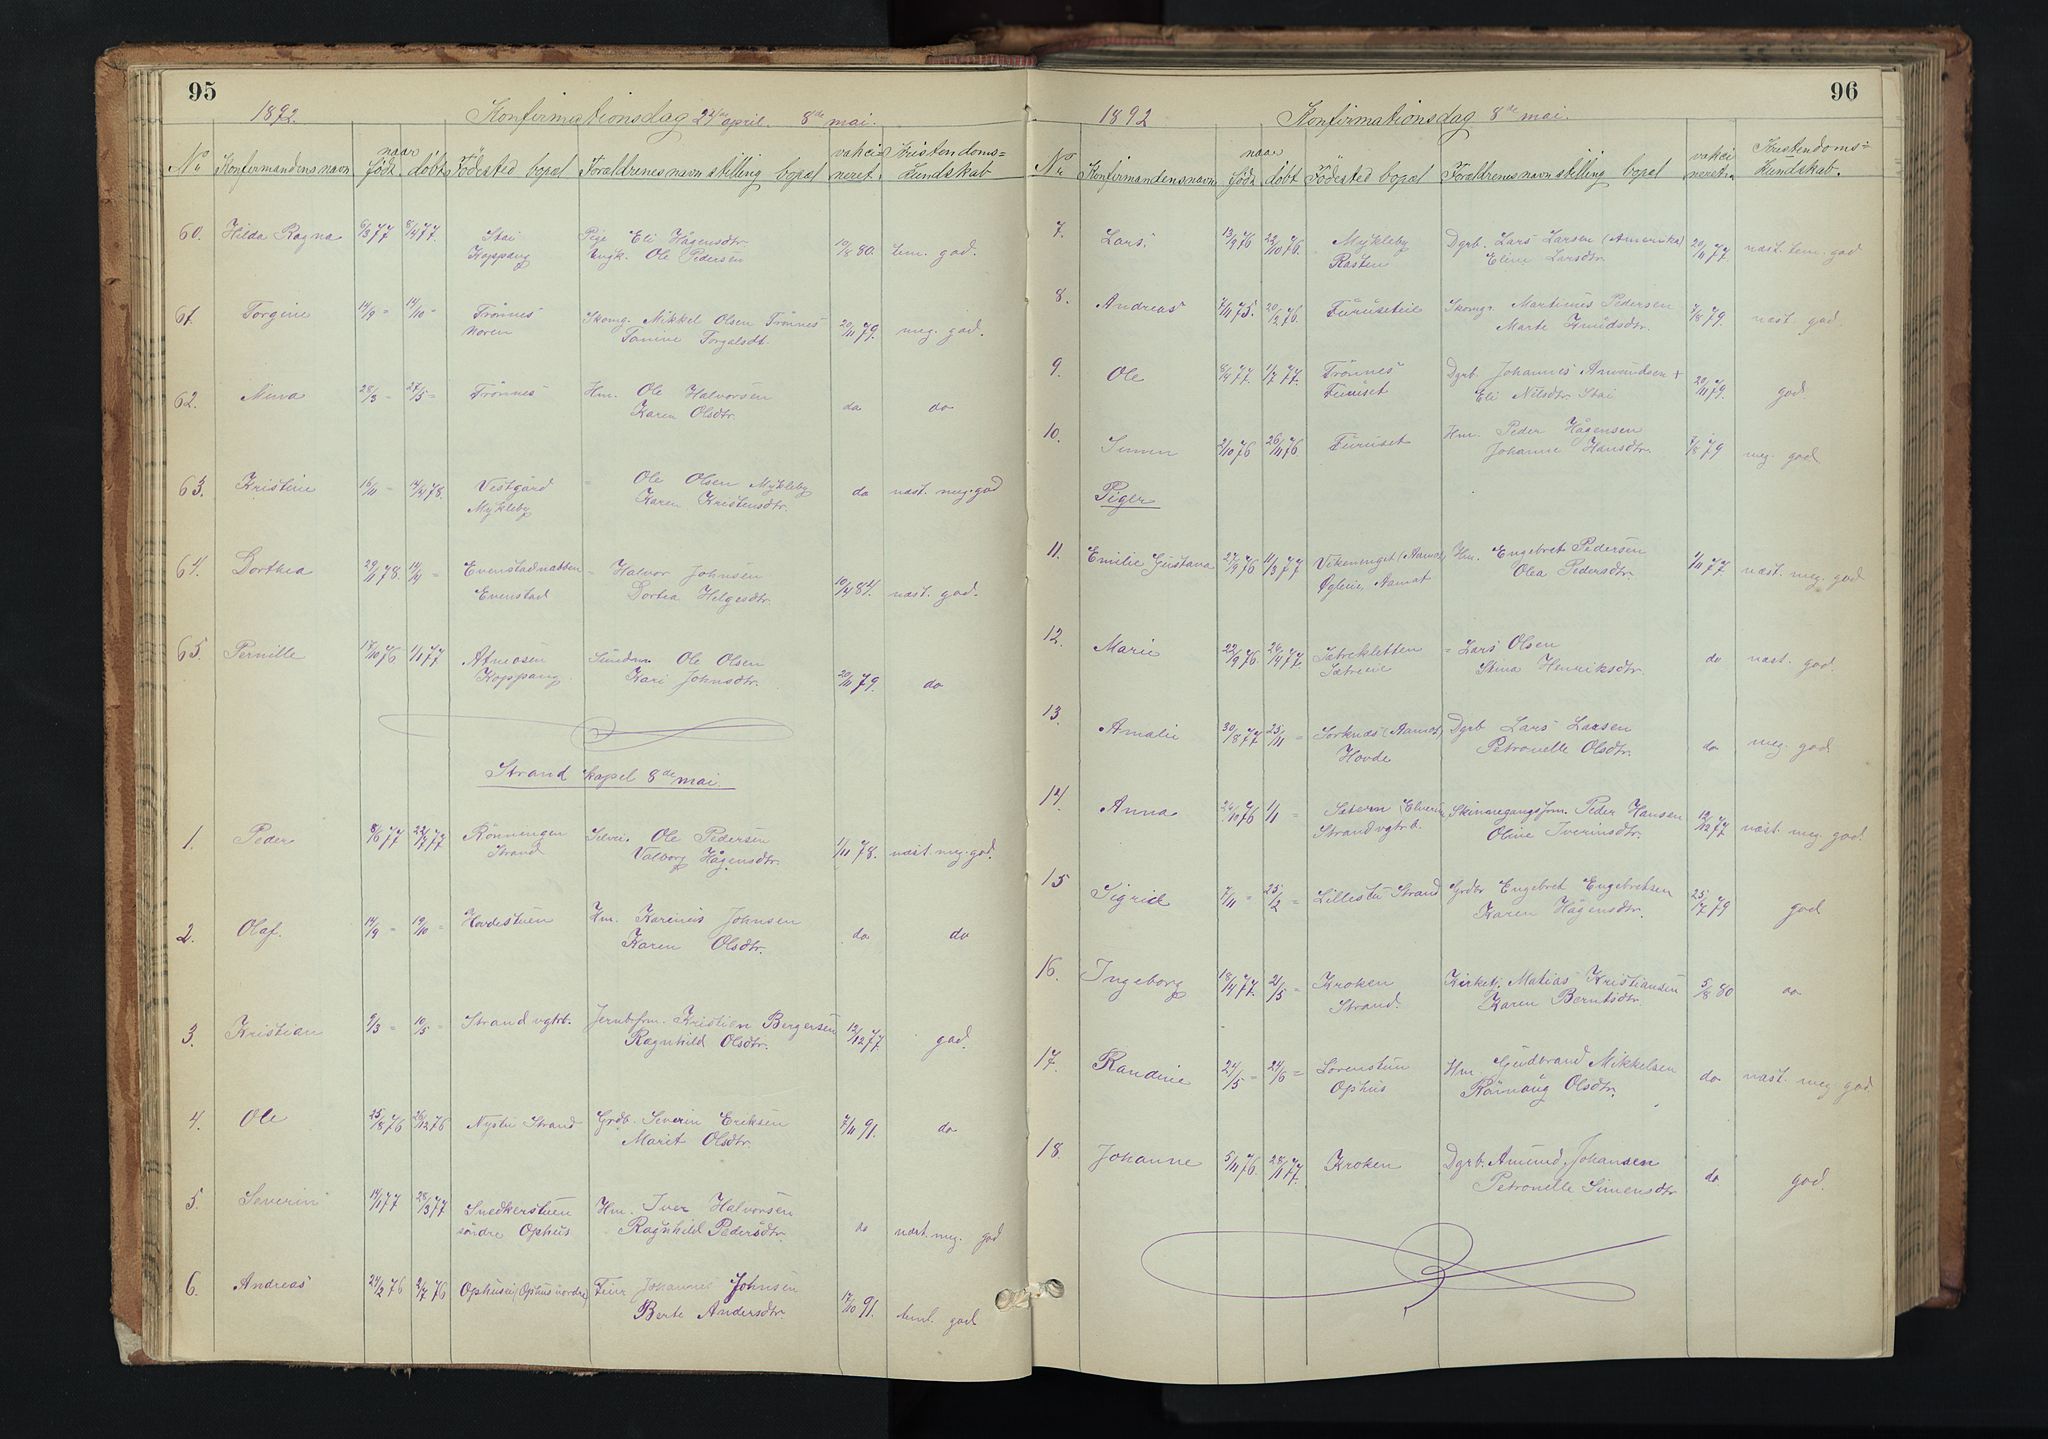 95
1892. Konfirmationsdag 24de april. 8de mai.
No Konfirmandens navn naar født døbt Fødested bopæl Forældrenes navn stilling bopæl vakcineret. Kristendoms=kundskab
60. Hilda Ragna 6/3 77 8/4 77. Stai Pige Eli Hågensdtr 10/8 80. tem. god.
Koppang Engk. Ole Pedersen
61. Torgine 14/9 = 14/10 = Trönnes Skomg. Mikkel Olsen Trönnes 20/11 79. meg. god.
noren Tomine Torgalsdt.
62. 28/3 = 27/5 = Trönnes Hm. Ole Halvorsen do do
Karen Olsdtr.
63. Kristine 16/11 = 14/4 78. Vestgård = Ole Olsen Mykleby do næst. meg. god
Mykleby Karen Kristensdtr.
64. Dorthea 29/1 78. 14/4 = Evenstadnatten = Halvor Johnsen 10/4 84. næst. god.
Evenstad Dortea Helgesdtr.
65. Pernille 17/10 76 1/1 77 Atneosen Ole Olsen 20/11 79. do
Koppang. Kari Johnsdtr.
Strand kapel 8de mai.
1. Peder 8/6 77 22/7 77 Rönningen Selvei. Ole Pedersen 1/11 78. næst. meg. god.
Strand Valborg Hågensdtr.
2. Olaf. 14/9 = 19/10 = Hovdestuen Hm. Karenus Johnsen do do
Karen Olsdtr.
3. Kristian 9/3 = 10/5 = Strand vgtrb. Jernbfm. Kristian Bergersen 12/12 77. god.
Ragnhild Olsdtr.
4. Ole 25/8 76 26/12 76 Nystu Strand Grdb. Severin Eriksen 7/11 91. do
Marit Olsdtr.
5. Severin 14/1 77 28/3 77 Snedkerstuen Hm. Iver Halvorsen do næst. meg. god
söndre Ophus Ragnhild Pedersdtr.
6. Andreas 24/2 76 2/7 76 Ophusei (Ophus nordre) Johannes Johnsen 17/10 91. teml. god
Berte Andersdtr.
96
1892 Konfirmationsdag 8de mai.
No. Konfirmandens navn naar født døbt Fødested bopæl Forældrenes navn stilling bopæl vakcineret. Kristendoms=kundskab.
7. Lars. 13/9 76 22/10 76. Mykleby Dgrb. Lars Larsen (Amerika) 20/11 77. næst. tem. god
Rasten Eline Larsdtr.
8. Andreas 7/11 75. 20/2 76. Furuseteie Skomgr. Martinus Pedersen 7/8 79. næst. god.
Marte Knudsdtr.
9. Ole 8/4 77. 1/7 77. Trönnes Dgrb. Johannes Amundsen + 20/11 79. god
Furuset Eli Nilsdtr. Stai
10. Simen 2/10 76 26/11 76. Furuset Hm. Peder Hågensen 7/8 79 meg. god
Johanne Hansdtr.
Piger
11. Emilie Gustava 27/9 76 11/3 77 (Aamot) Hm. Engebret Pedersen 1/11 77. næst. meg. god
Aamot Olea Pedersdtr.
12. Marie 22/9 76. 24/4 77. Sætrekletten = Lars Olsen do næst. god.
Sætreeie Stina Henriksdtr.
13. Amalie 30/8 77 25/11 = Sorknæs (Aamot) Dgrb. Lars Larsen do meg. god
Hovde Petronelle Olsdtr.
14. Anna 24/10 76 1/1 = (Elverum Skinnegangsfm. Peder Hansen 12/12 77. næst. meg. god
Strand vgtrb. Oline Iverinsdtr.
15 Sigrid 7/11 = 25/2 = Lillestu Strand Grdbr Engebret Engebretsen 25/7 79 god
Karen Hågensdtr.
16. Ingeborg 18/4 77. 21/5 = Kroken Kirket. Matias Kristiansen 5/8 80 do
Strand. Karen Berntsdtr.
17. Randine 24/5 = 24/6 = Lorenstuen Hm. Gudbrand Mikkelsen do næst. meg. god.
Ophus Rönnaug Olsdtr.
18. Johanne 5/11 76. 28/1 77. Kroken Dgrb. Amund Johansen do god.
Petronelle Simensdtr